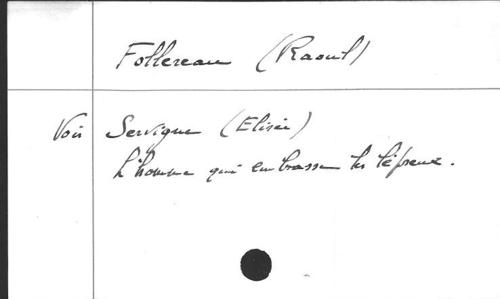 Follereau (Raoul)
Voir Servigne (Elisée)
L'homme qui embrasse les lépreux.